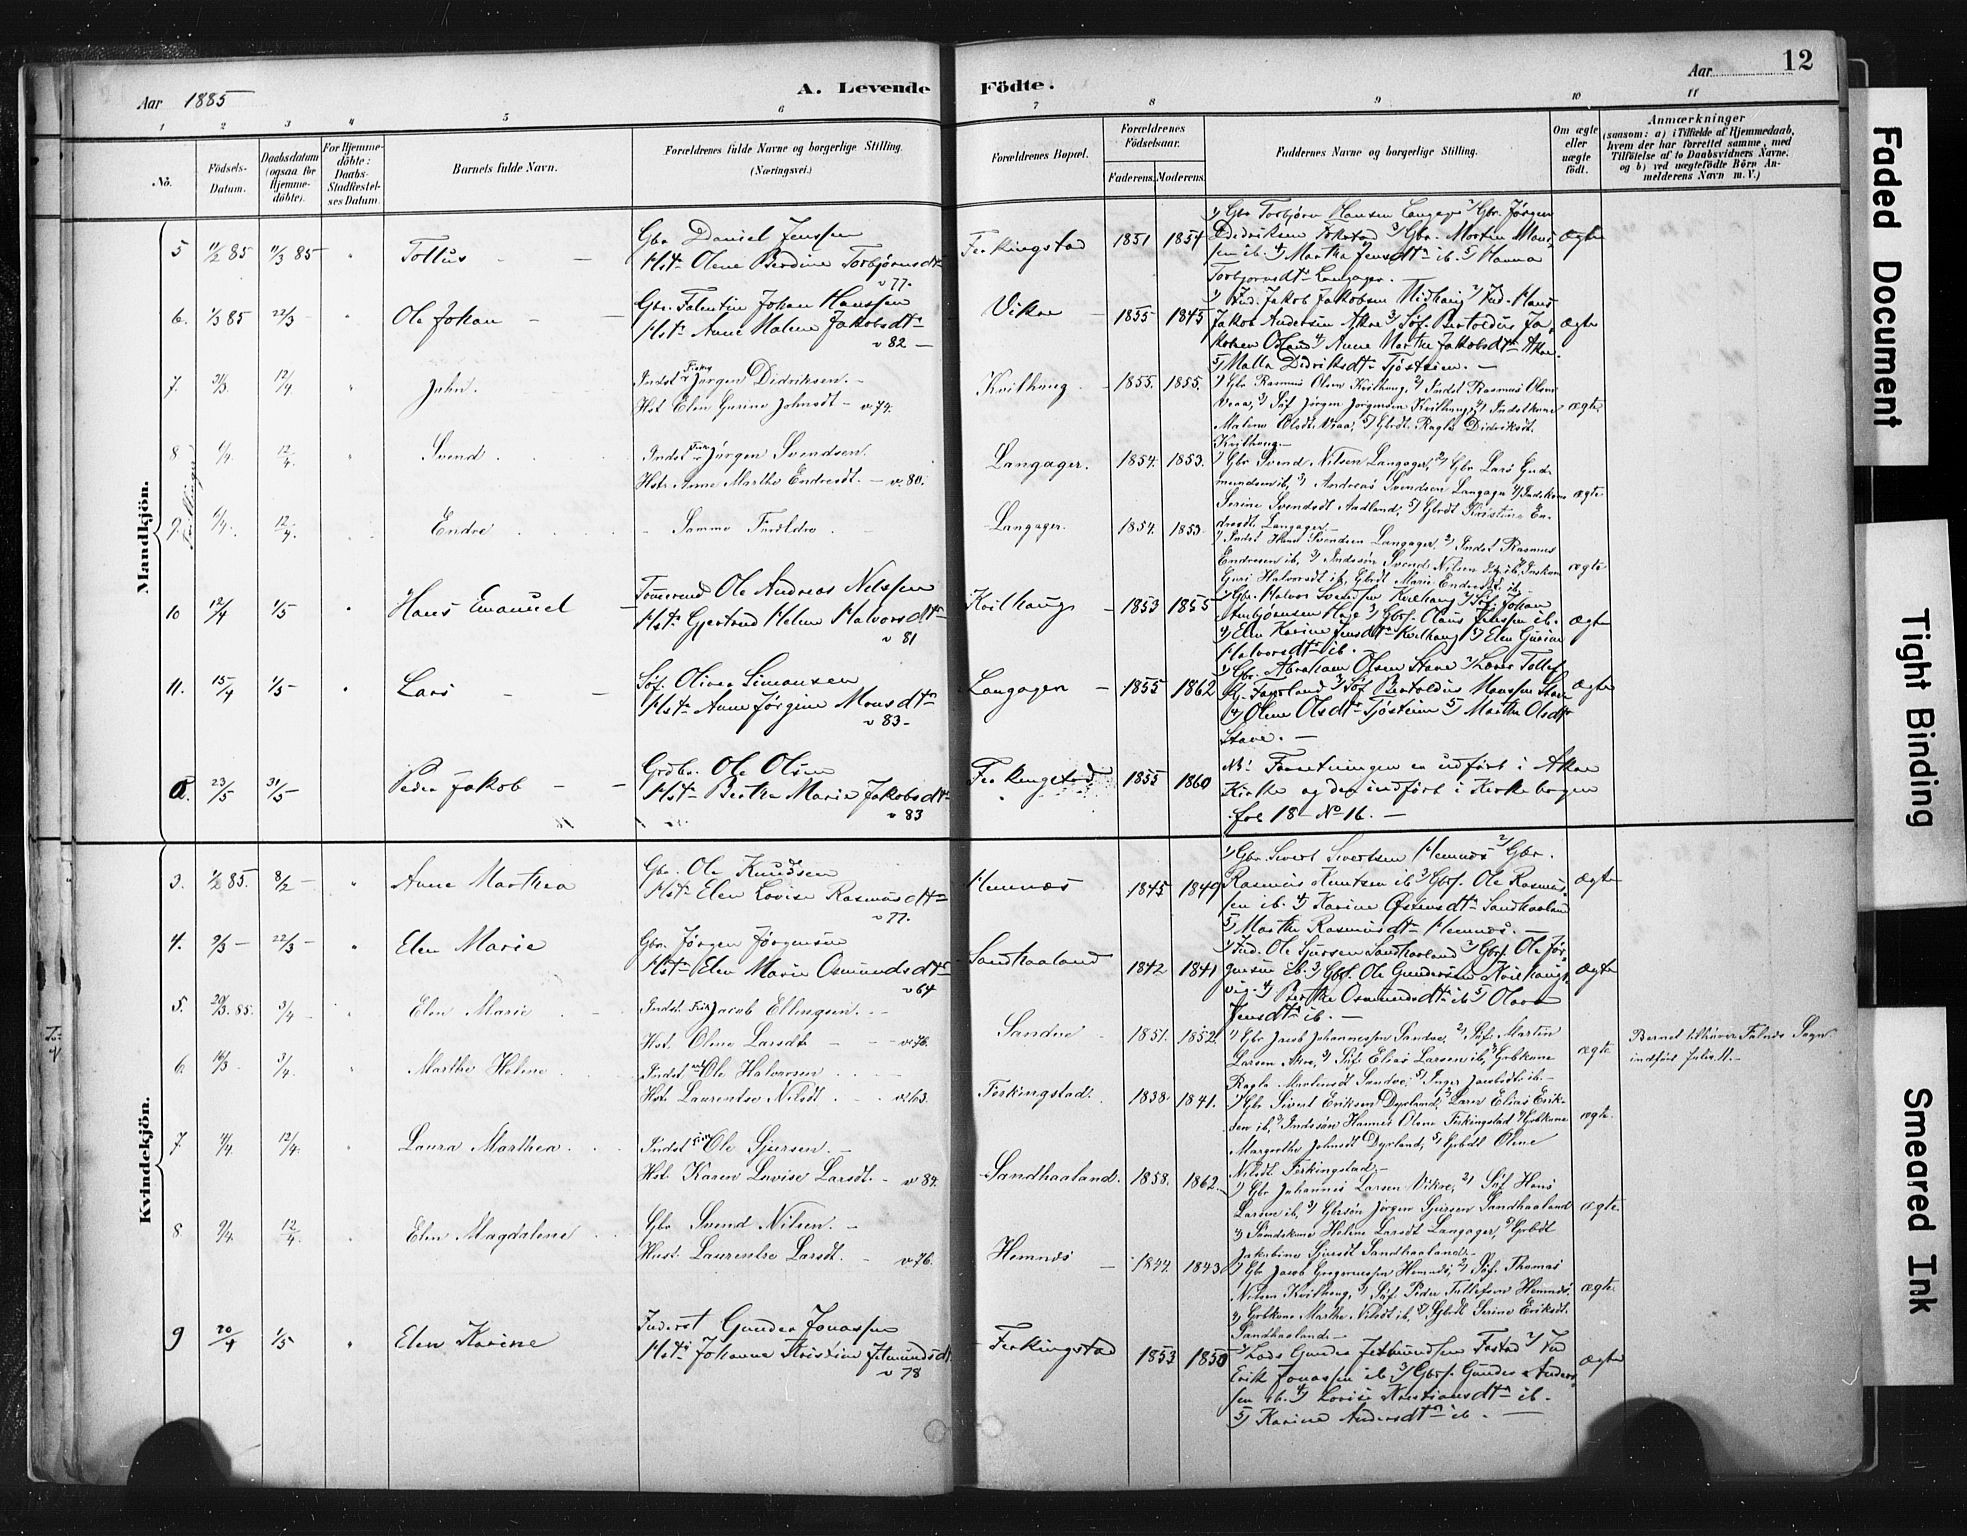 Aar 1885
A. Levende
Födte.
Aar
12
1 2 3 4 5 6 7 8 9 10 11
No.
Födsels-
Datum.
Daabsdatum
(ogsaa for
Hjemme-
döbte).
For Hjemme-
döbte:
Daabs-
Stadfæstel-
ses Datum.
Barnets fulde Navn.
Forældrenes fulde Navne og borgerlige Stilling.
(Næringsvei.)
Forældrenes Bopæl.
Forældrenes
Födselsaar.
Faderens. Moderens.
Faddernes Navne og borgerlige Stilling.
Om ægte
eller
uægte
födt.
Anmærkninger
(saasom: a) i Tilfælde af Hjemmedaab,
hvem der har forrettet samme, med
Tilföielse af to Daabsvidners Navne,
og b) ved uægtefödte Börn An-
melderens Navn m. V.)
Mandkjön.
5 11/2 85 11/3 85 Tollus Gbr Daniel Jenssen
Hst. Olene Berdine Torbjørnsdtr
v 77.
Ferkingstad 1851 1854
1) Gbr Torbjørn Hansen Langager 2) Gbr. Jørgen
Didriksen 3) Gbr. Morten
sen ib. 4) Martha Jensdtr ib. 5) Hanna
Torbjørnsdtr Langager.
ægte
6. 1/3 85 22/3 Ole Johan Gbr. Falentin Johan Hanssen
Hst. Anne Malene Jakobsdtr
v 82
Vikre 1855 1845
1) Ind. Jakob Jakobsen Midhaug 2) Ind. Hans
Jakob Andersen Akre 3) Søf. Bertoldus Ja-
kobsen 4) Anne Marthe Jakobsdtr Akre.
5) Malla Didriksdtr Tjøstheim.
ægte
7. 31/3 12/4 John. Indst. Jørgen Didriksen.
Hst Elen Gurine Johnsdt v. 74.
Kvilhaug 1855. 1855.
1) Gbr Rasmus Olsen Kvilhaug, 2) Indst Rasmus Olsen
Vraa, 3) Søf Jørgen Jørgensen Kvilhaug, 4) Indstkone
Malene Olsdt Vraa, 5) Gbrdt Ragla Didriksdt.
Kvilhaug.
ægte
8 4/4. 12/4. Svend. Indst Jørgen Svendsen.
Hstr Anne Marthe Endresdt. v. 80.
Langager. 1854. 1853.
1) Gbr Svend Nilsen Langager, 2) Gbr Lars Gud-
mundsen ib, 3) Andreas Svendsen Langager 4) Indstkone
Serine Svendsdt Aadland, 5) Gbrdt Kristine En-
dresdt Langager.
ægte
Tvillinger
9. 4/4. 12/4. Endre Samme Forældre
Langager. 1854. 1853.
1) Indst Hans Svendsen Langager, 2) Indst Rasmus
Endresen ib, 3) Indssøn Svend Nilsen ib,
Guri Halvorsdt ib, Gbrdt Marie Endresdt ib.
ægte
10 12/4 1/5 Hans Emanuel Ole Andreas Nilssen
Hst. Gjertrud Helene Halvorsdtr
v 81
Kvilhaug 1853 1855
1) Gbr. Halvor Svendsen Kvilhaug 2) Søf. Johan
3) Gbrf. Olaus Jenssen ib.
4) Elen Karine Jensdtr Kvilhaug 5) Elen Gurine
Halvorsdtr ib.
ægte
11. 15/4 1/5 Lars Søf. Oliver Simonsen
Hst. Anne Jørgine Monsdtr
v 83
Langager 1855 1862
1) Gbr. Abraham Olsen Stave 2) Lærer Tollef
3) Søf Bertoldus Monssen Stave
4) Olene Olsdtr Tjøstheim 5) Marthe Olsdtr
Stave.
ægte
a. 23/5 31/5 Peder Jakob Grdbr. Ole Olsen
Hst. Berthe Marie Jakobsdtr
v 83
Ferkingstad 1855 1860
NB! Forretningen er udført i Akre
Kirke og der indført i Kirkebogen
fol 18 No 16.
Kvindekjön.
3. 1/2 85. 8/2 Anne Marthea Gbr. Ole Knudsen
Hst. Elen Lovise Rasmusdtr
v 77.
Hemnæs 1845 1849
1) Gbr Sivert Sivertsen Hemnæs 2) Gbr.
Rasmus Knutsen ib 3) Gbrf. Ole Rasmus-
sen ib. 4) Karine Østensdtr Sandhaaland
5) Marthe Rasmusdtr Hemnæs.
ægte
4. 9/3 22/3 Elen Marie Gbr. Jørgen Jørgensen
Hst. Elen Marie Osmundsdtr
v 64
Sandhaaland 1842 1841
1) Ind. Ole Sjursen Sandhaaland 2) Gbrf. Ole Jør-
gensen ib. 3) Gbrf. Ole Gundersen Kvilhaugs-
vig. 4) Berthe Osmundsdtr ib 5) Olava
Jensdtr ib.
ægte
5. 20/3. 85. 3/4 Elen Marie Indst. Jacob Ellingsen.
Hst. Olene Larsdt v. 76.
Sandve 1851. 1852.
1) Gbr Jacob Johannessen Sandve, 2) Søf. Martin
Larsen Akre, 3) Søf Elias Larsen ib, 4) Gbrkone
Ragla Martinsdt Sandve, 5) Inger Jacobsdt ib
ægte
Barnet tilhører Falnæs Sogn
indført
6 16/3 3/4. Marthe Helene Indst Ole Halvorsen
Hst Laurentse Nilsdt v. 63.
Ferkingstad. 1838 1841.
1) Gbr Sivert Eriksen Dyrland, 2) Lærer Elias Erik-
sen ib, 3) Indssøn Hannes Olsen Ferkingstad 4) Gbrkone
Margrethe Johnsdt Dyrland, 5) Gbrdt Olene
Nilsdt Ferkingstad.
ægte.
7 4/4. 12/4. Laura Marthea Indst Ole Sjursen.
Hst Karen Lovise Larsdt. v 84.
Sandhaaland. 1858. 1862.
1) Gbr Johannes Larsen Vikre, 2) Søf Hans
Larsen ib, 3) Gbrsøn Jørgen Sjursen Sandhaaland
4) Helene Larsdt Langager, 5) Gbrdt
Jakobine Sjursdt Sandhaaland.
ægte
8 9/4. 12/4. Elen Magdalene Gbr Svend Nilsen.
Hust Laurentse Larsdt. v 76.
Hemnæs 1844. 1843
1) Gbr Jacob Gregoriussen Hemnæs, 2) Søf. Thomas
Nilsen Kvilhaug, 3) Søf. Peder Tollefsen Hemnæs,
4) Gbrkone Marthe Nilsdt ib, 5) Gbrdt Serine Eriksdt
Sandhaaland.
ægte.
9 20/4 1/5 Elen Karine Inderst Gunder Jonassen
Hst. Johanne Kristine Jetmundsdt
v 78
Ferkingstad 1853 1850
1) Lods Gunder Jetmundsen 2) Ind
Erik Jonassen ib 3) Gbrf. Gunder Anders-
sen ib. 4) Lovise Kristiansdtr ib.
5) Karine Andersdtr ib.
ægte
Faded Document
Tight Binding
Smeared Ink